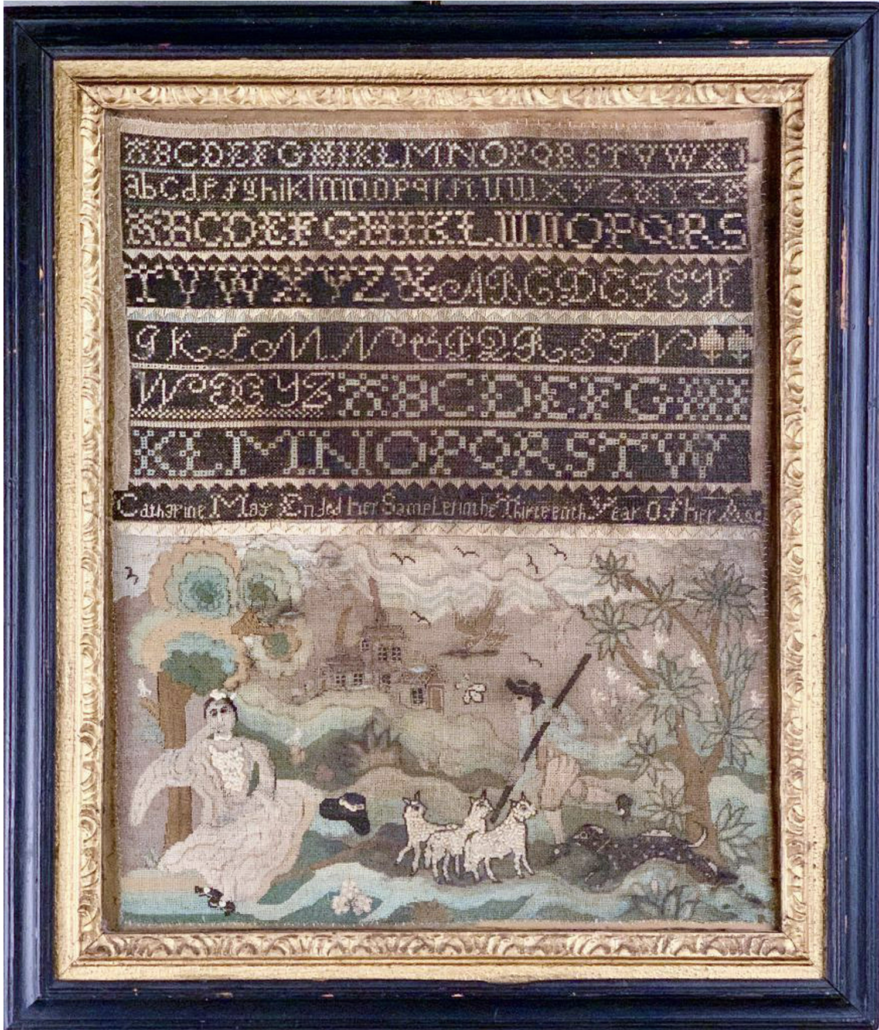 ABCDEFGHIKLMNOPQRSTVWXY
abcdefghiklmnopqrstuwxyzXYZ&
ABCDEFGHIKLMNOPQRS
TVWXYZ&ABCDEFGH
IKLMNOPQRSTV
WXYZABCDEFGH
KLMNOPQRSTW
Catharine May Ended Her Sampler in the Thirteenth Year Of Her Age